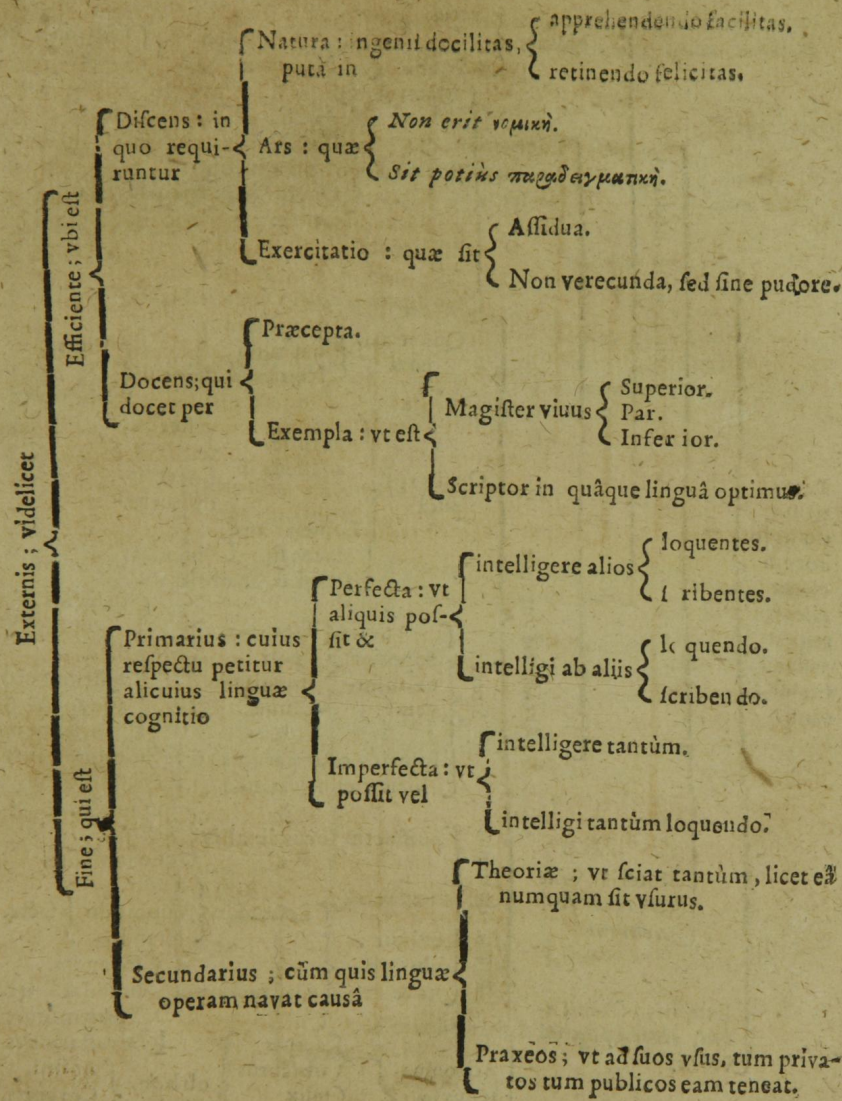 Externis ; videlicet
Efficiente ; vbi est
Diſcens : in
quo requi-
runtur
Natura : ngenii docilitas,
puta in
apprehendendo facilitas,
retinendo felicitas.
Ars : quæ
Non erit
Sit potius παραδειγματικὴ.
Exercitatio : quæ ſit
Aſſidua.
Non verecunda, ſed ſine pudore.
Docens; qui
docet per
Præcepta.
Exempla : vt eſt
Magiſter viuus
Superior.
Par.
Inferior.
Scriptor in quâque linguâ optimus.
Fine ; qui eſt
Primarius : cuius
reſpectu petitur
alicuius linguæ
cognitio
Perfecta : vt
aliquis poſ-
ſit &
intelligere alios
loquentes.
ſ ribentes.
intelligi ab aliis
lo quendo.
ſcribendo.
Imperfecta : vt
poſſit vel
intelligere tantùm.
intelligi tantùm loquendo.
Secundarius ; cùm quis linguæ
operam navat causâ
Theoriæ ; vt ſciat tantùm, licet eâ
numquam ſit vſurus.
Praxeôs ; vt ad ſuos vſus, tum priva-
tos tum publicos eam teneat.